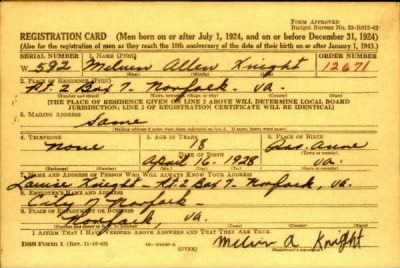 FORM APPROVED
Budget Bureau No. 33-R012-42
REGISTRATION CARD (Men born on or after July 1, 1924, and on or before December 31, 1924)
(Also for the registration of men as they reach the 18th anniversary of the date of their birth on or after January 1, 1943.)
SERIAL NUMBER 1. NAME (Print) ORDER NUMBER
W 592 Melvin Allen Knight 12671
(First) (Middle) (Last)
2. PLACE OF RESIDENCE (Print)
Rt. 2 Box 7 - Norfolk - Va.
(Number and street) (County) (State)
[THE PLACE OF RESIDENCE GIVEN ON LINE 2 ABOVE WILL DETERMINE LOCAL BOARD
JURISDICTION; LINE 2 OF REGISTRATION CERTIFICATE WILL BE IDENTICAL]
3. MAILING ADDRESS
Same
4. TELEPHONE 5. AGE IN YEARS 6. PLACE OF BIRTH
None 18 Anne
DATE OF BIRTH
April 16, 1928 Va.
7. NAME AND ADDRESS OF PERSON WHO WILL ALWAYS KNOW YOUR ADDRESS
Louise Knight - Rt. 2 Box 7 - Norfolk, Va.
8. EMPLOYER'S NAME AND ADDRESS
City of Norfolk -
9. PLACE OF EMPLOYMENT OR BUSINESS
Norfolk, Va.
I AFFIRM THAT I HAVE VERIFIED ABOVE ANSWERS AND THAT THEY ARE TRUE.
DSS Form 1 (Rev. 11-16-42) (OVER) Melvin A Knight